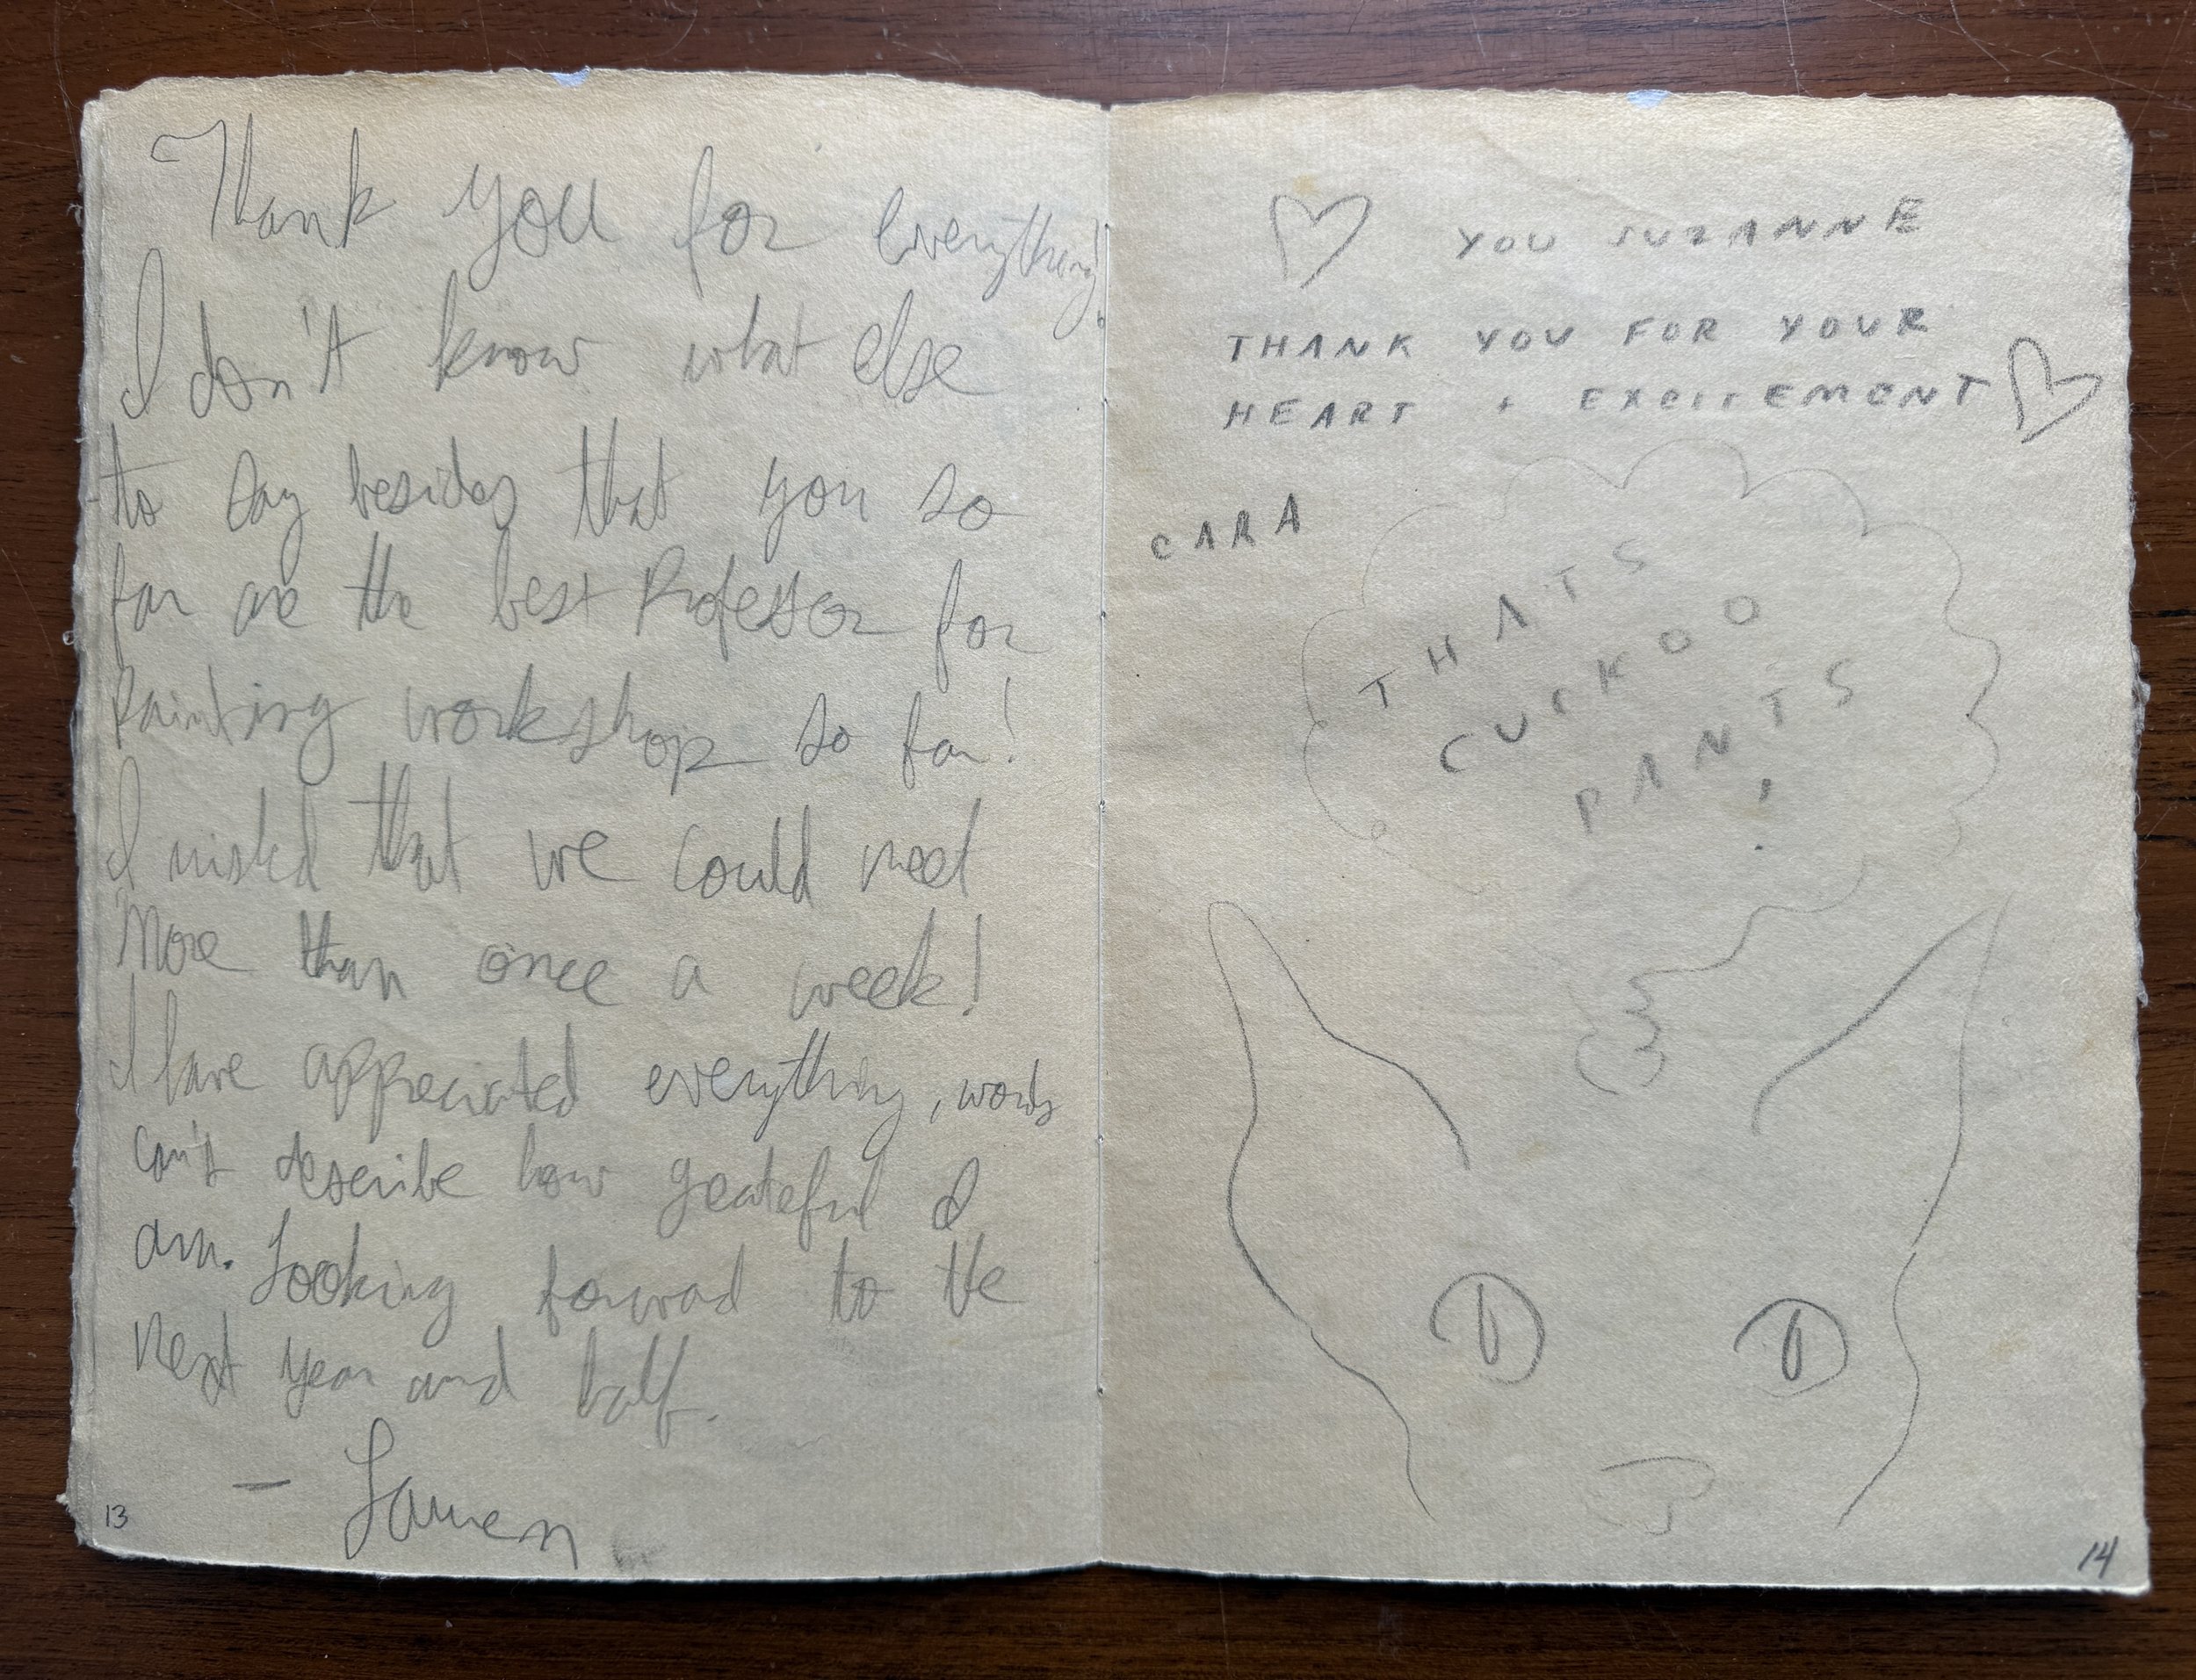 Thank you for everything!
I don't know what else
to say besides that you so
far are the best Professor for
painting workshop so far!
I wished that we could meet
More than once a week!
I have appreciated everything, words
can't describe how grateful I
am. Looking forward to the
next year and half.
- Lauren
13
♡ YOU SUZANNE
THANK YOU FOR YOUR
HEART + EXCITEMENT ♡
CARA
THATS
CUCKOO
PANTS
!
14